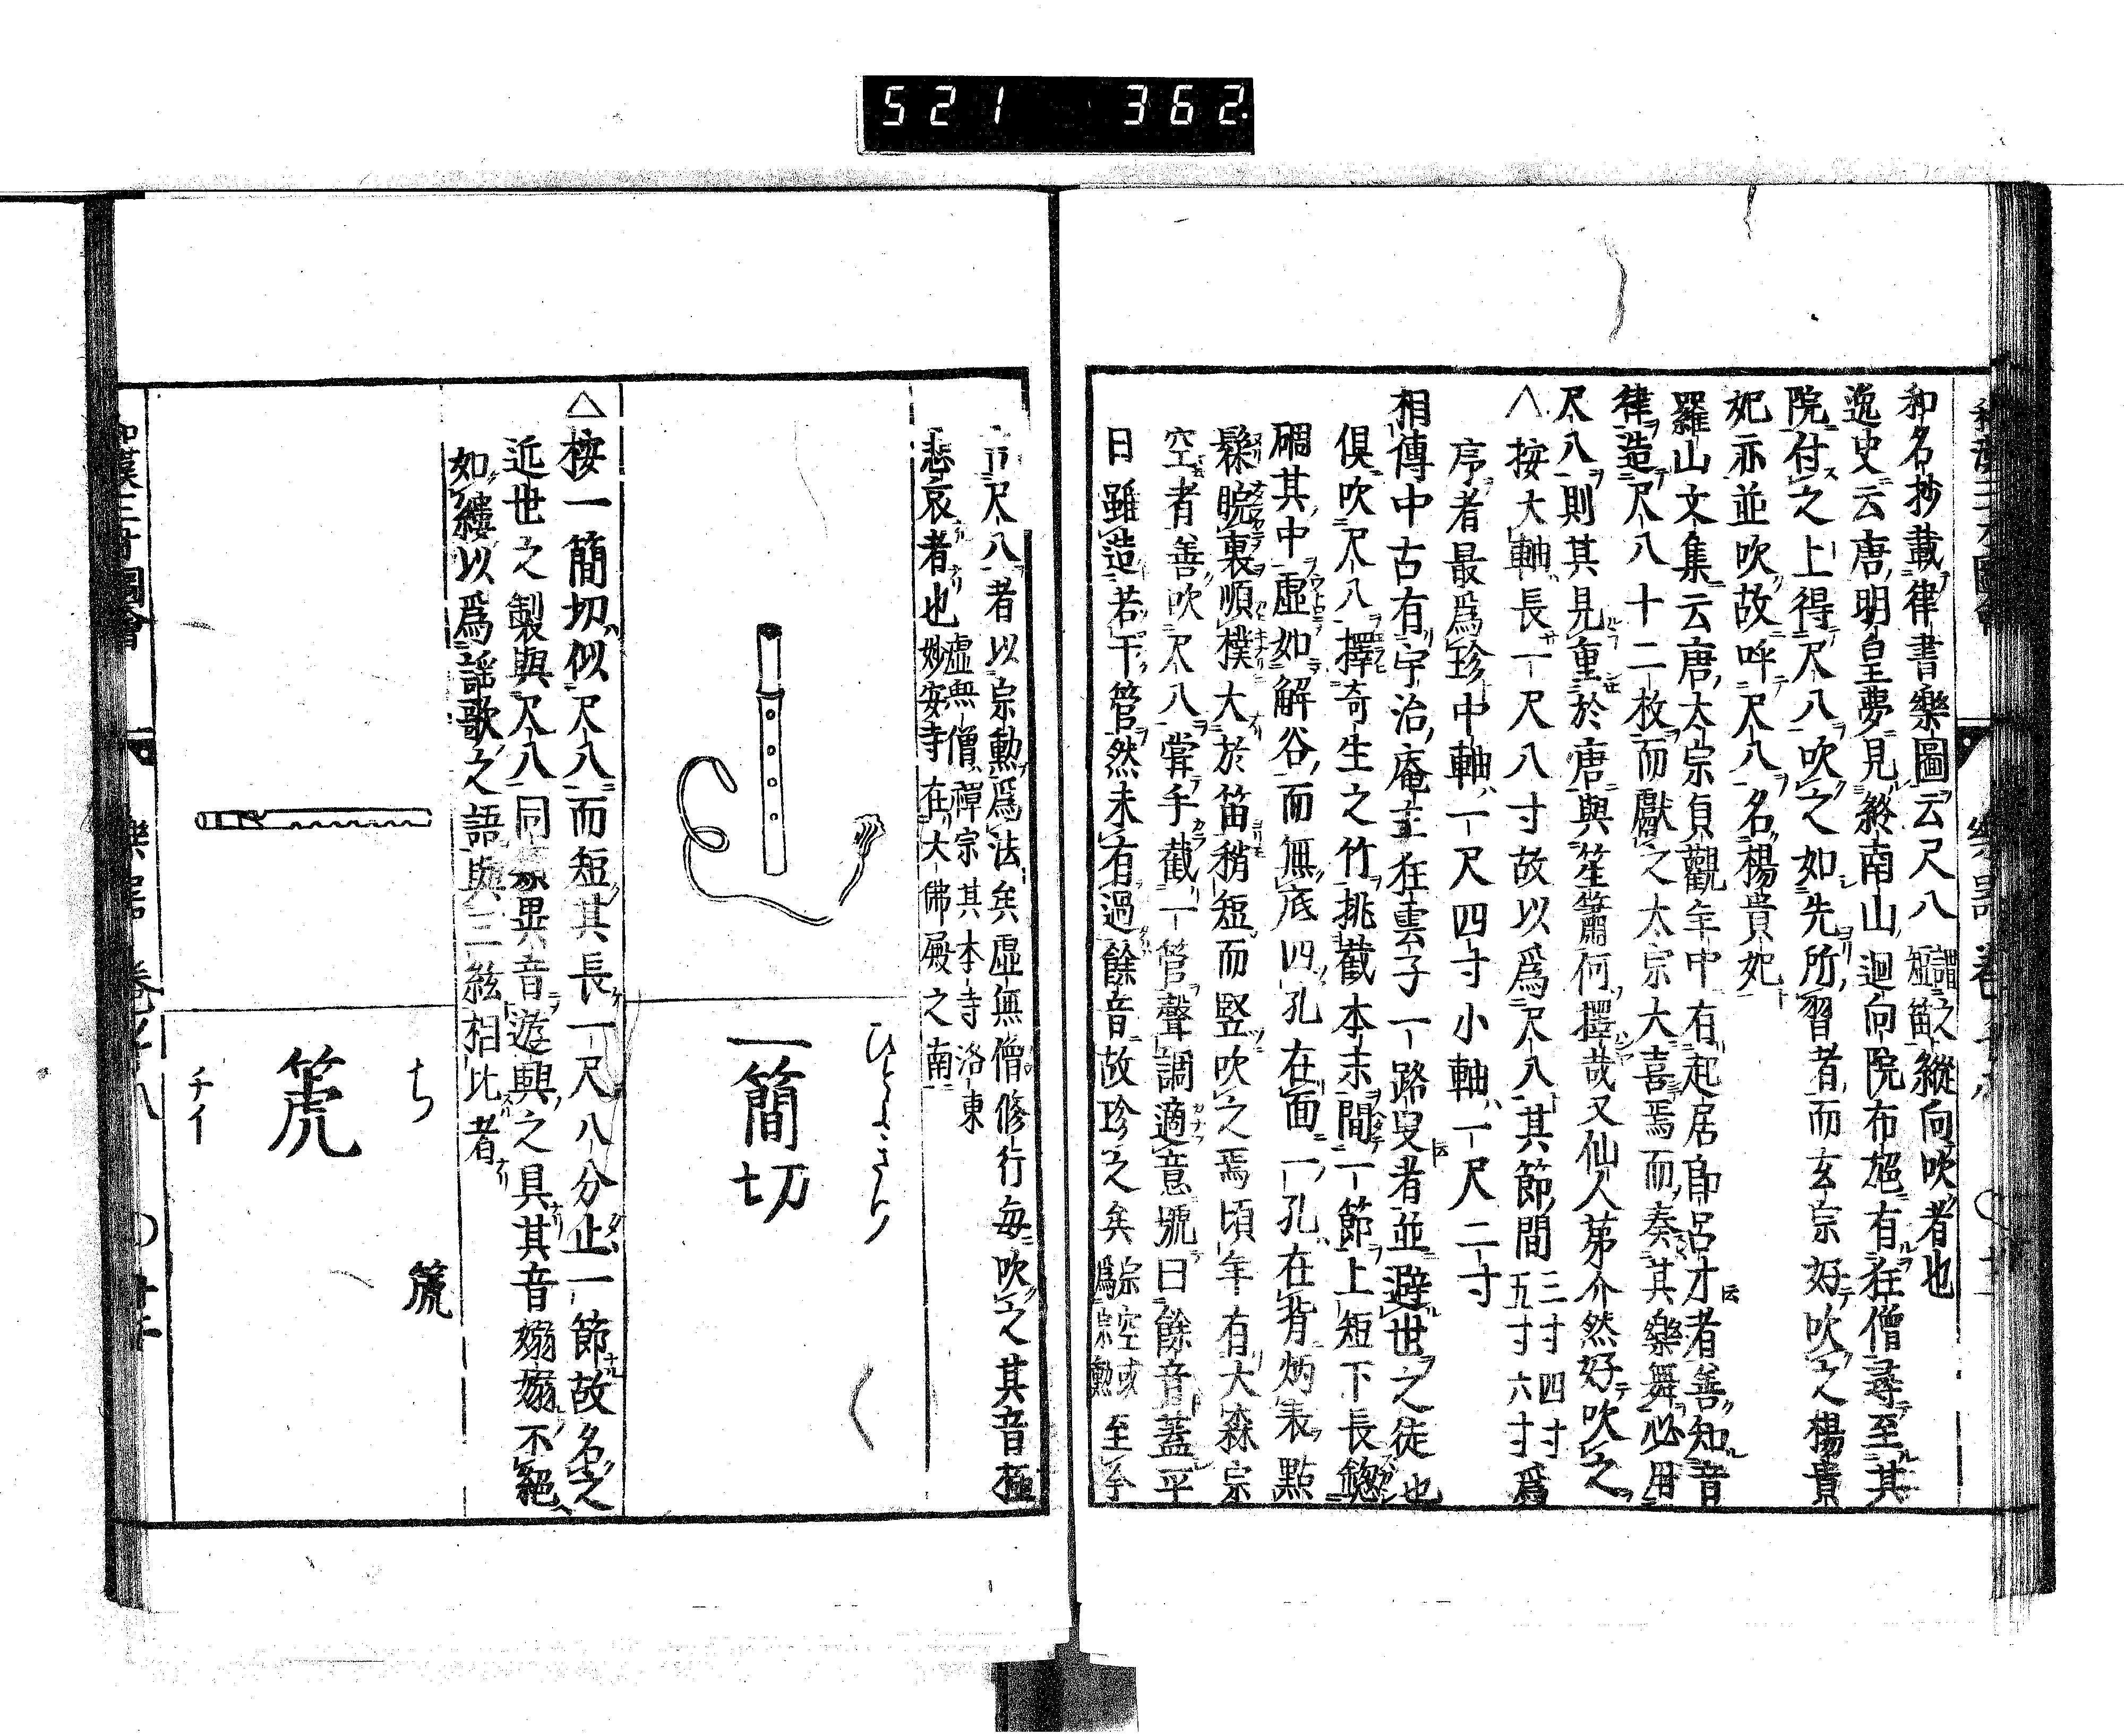 521 362
和名抄載律書樂圖云尺八謂之短笛縱向吹者也
逸史云唐明皇夢見終南山廻向院布袍有狂僧尋至其
院付之上得尺八吹之如先所習者而玄宗好吹之楊貴
妃亦並吹故呼尺八名楊貴妃
羅山文集云唐太宗貞觀年中有起居郎呂才者善知音
律造尺八十二枚而獻之太宗大喜焉而奏其樂舞必用
尺八則其見重於唐與笙簫何擇哉又仙人苐介然好吹之
△按大軸長一尺八寸故以爲尺八其節間三寸四寸五寸六寸爲
序者最爲珍中軸一尺四寸小軸一尺二寸
相傳中古有宇治庵主狂雲子一路叟者並避世之徒也
俱吹尺八擇奇生之竹挑截本末間一節上短下長
其中虛如解谷而無底四孔在面一孔在背炳表點
裏順樸大於笛稍短而竪吹之焉頃年有大森宗
空者善吹尺八嘗手截一管聲調適意號曰餘音蓋平
日雖造若干管然未有過餘音故珍之矣宗空或爲宗勲至今
尺八者以宗勲爲法矣虛無僧修行每吹之其音極
悲哀者也虛無僧禪宗其本寺洛東妙安寺在大佛殿之南
ひとよきり
一簡切
△按一簡切似尺八而短其長一尺八分止一節故名之
近世之製與尺八同類異音遊興之具其音嫋嫋不絕
如縷以爲謡歌之語與三絃相比者
ち
篪
箎
チイ
和漢三才圖會 樂器 卷之十八